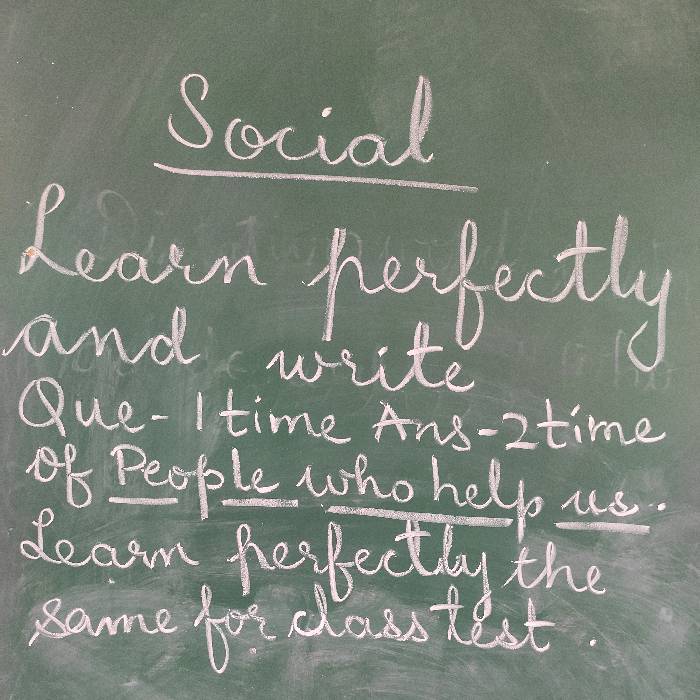 Social
Learn perfectly
and write
Que- 1 time Ans-2 time
of People who help us.
Learn perfectly the
same for class test.